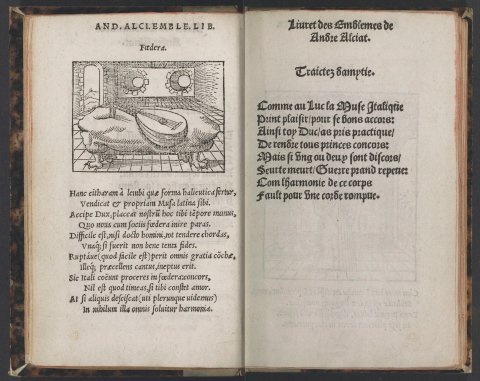 AND. ALCI. EMBLE. LIB.
Fœdera.
Hanc citharam à lembi quæ forma halieutica fertur,
Vendicat & propriam Musa latina sibi.
Accipe Dux, placeat nostrũ hoc tibi tẽpore munus,
Quo noua cum sociis fœdera inire paras.
Difficile est, nisi docto homini, tot tendere chordas,
Vnaq́; si fuerit non bene tenta fides,
Ruptáue (quod facile est) perit omnis gratia cõchæ,
Illeq́; præcellens cantus, ineptus erit.
Sic Itali coëunt proceres in fœdera: concors,
Nil est quod timeas, si tibi constet amor.
At si aliquis desciscat (uti plerunque uidemus)
In nihilum illa omnis soluitur harmonia.
Liuret des Emblemes de
Andre Alciat.
Traictez damytie.
Comme au Luc la Muse Italique
Print plaisir/pour se bons accors:
Ainsi toy Duc/as pris practique/
De rendre tous princes concors:
Mais si vng ou deux sont discors/
Seurte meurt/Guerre prand repetue:
Com lharmonie de ce corps
Fault pour vne corde rompue.